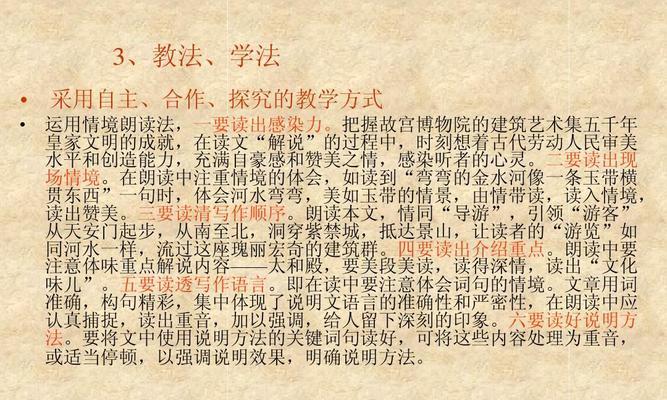 3、教法、学法
• 采用自主、合作、探究的教学方式
• 运用情境朗读法，一要读出感染力。把握故宫博物院的建筑艺术集五千年
皇家文明的成就，在读文“解说”的过程中，时刻想着古代劳动人民审美
水平和创造能力，充满自豪感和赞美之情，感染听者的心灵。二要读出现
场情境。在朗读中注重情境的体会，如读到“弯弯的金水河像一条玉带横
贯东西”一句时，体会河水弯弯，美如玉带的情景，由情带读，读入情境，
读出赞美。三要读清写作顺序。朗读本文，情同“导游”，引领“游客”
从天安门起步，从南至北，洞穿紫禁城，抵达景山，让读者的“游览”如
同河水一样，流过这座瑰丽宏奇的建筑群。四要读出介绍重点。朗读中要
注意体味重点解说内容——太和殿，要美段美读，读得深情，读出“文化
味儿”。五要读透写作语言。即在读中要注意体会词句的情境。文章用词
准确，构句精彩，集中体现了说明文语言的准确性和严密性，在朗读中应
认真捕捉，读出重音，加以强调，给人留下深刻的印象。六要读好说明方
法。要将文中使用说明方法的关键词句读好，可将这些内容处理为重音，
或适当停顿，以强调说明效果，明确说明方法。